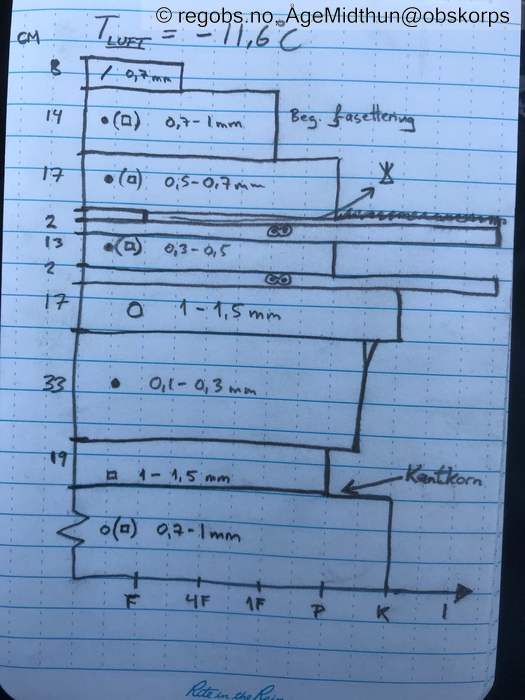 © regobs.no, ÅgeMidthun@obskorps
CM T LUFT = -11,6°C
8 / 0,7mm
14 •(□) 0,7-1mm Beg. fasettering
17 •(□) 0,5-0,7mm
2
13 •(□) 0,3-0,5
2
17 O 1-1,5mm
33 • 0,1-0,3mm
19
□ 1-1,5mm Kantkorn
o(□) 0,7-1mm
F 4F 1F P K I
Rite in the Rain